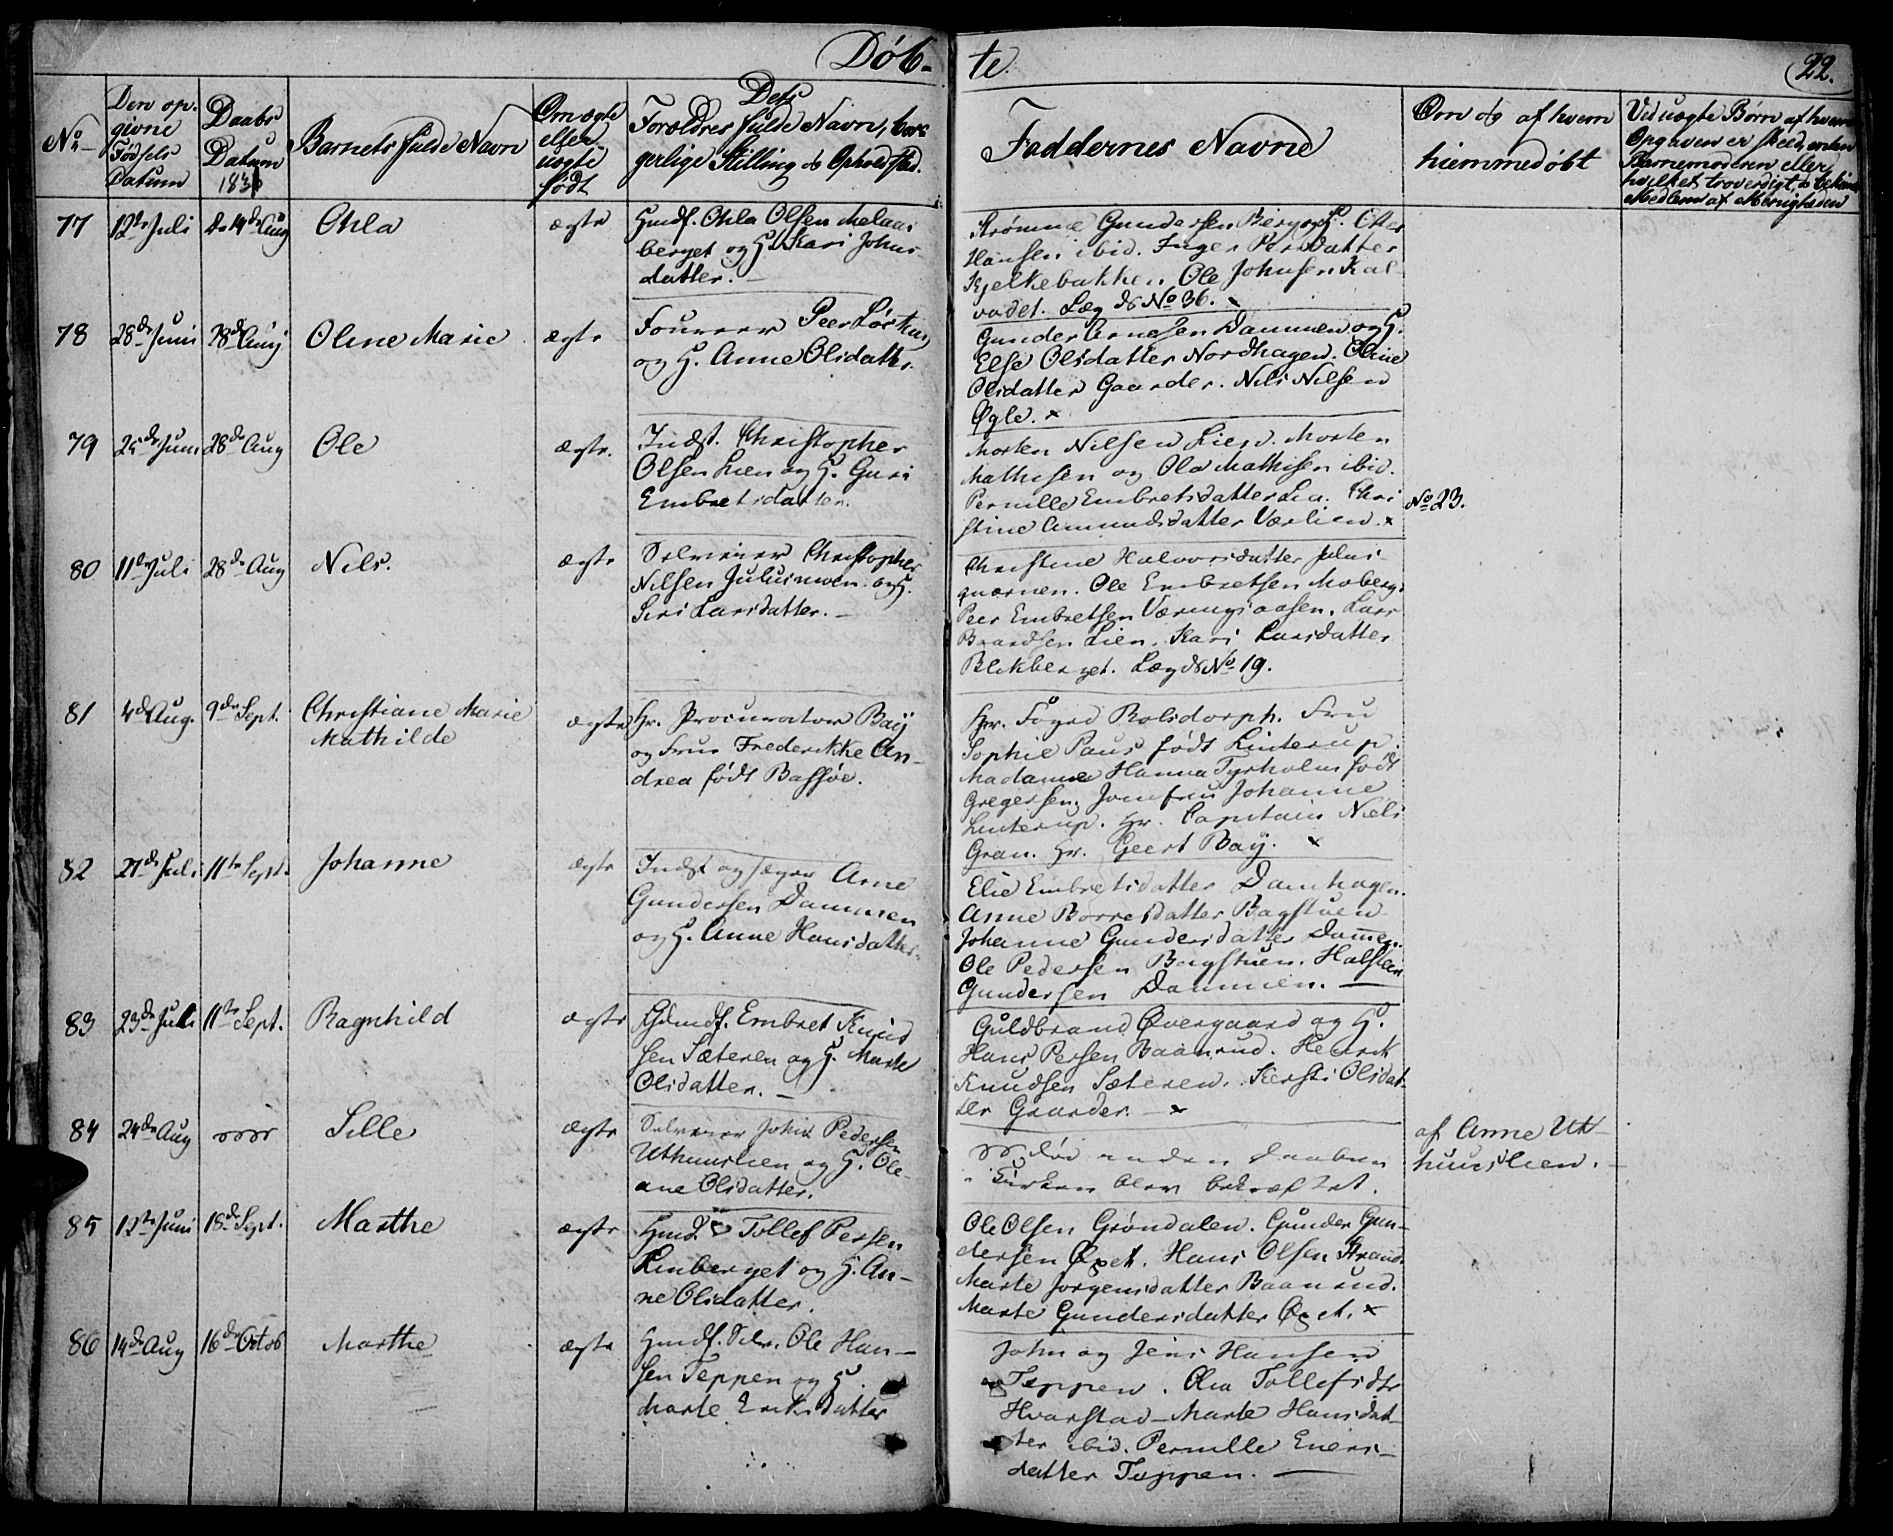 Døb-
te.
22.
No
Den op-
givne
Fødsels
Datum
Daabs
Datum
183
Barnets fulde Navn
Om ægte
eller
uægte
født
Dets
Forældres fulde Navn, bor-
gerlige Stilling og Opholdssted.
Faddernes Navne
Om og af hvem
hiemmedøbt
Ved uægte Børn af hvem
Opgaven er skeed, enten
Barnemoderen eller
hvilket troverdigt,
Medlem af Menigheden
77 12te Juli 14de Aug Ohla ægte
Huusf. Ohla Olsen Melaas
berget og H. Kari Johns
datter. —
Hansen ibid. Inger Persdatter
Kjelkebakken Ole Johnsen Kal-
vadet. Læg ds No 36.
78 28de Juni 28de Aug Oline Marie ægte
Foureer Peer
og H. Anne Olsdatter.
Gunder Arnesen Dammen og H.
Else Olsdatter Nordhagen. Oline
Olsdatter Gaarder. Nils Nilsen
Øgle. x
79 25de Juni 28de Aug Ole ægte.
Indst. Christopher
Olsen Lien og H. Guri
Embretsdatter.
Morten Nilsen Lien. Morten
Mathisen og Ola Mathisen ibid.
Pernille Embretsdatter Lia. Chri
stine Amundsdatter Værlien. x
No 23.
80 11te Juli 28de Aug Nils. ægte
Selveier Christopher
Nilsen Julusmoen og H.
Siri Larsdatter. —
Christine Halvorsdatter Julus-
qværnen. Ole Embretsen Moberg.
Peer Embretsen Væringsaasen. Lars
Baardsen Lien. Kari Larsdatter
Blekberget. Læg ds No 19.
81 4de Aug. 9de Sept. Christiane Marie
Mathilde
ægte
Hr. Procurator Baÿ
og Frue Frederikke An-
drea født Bassøe.
Hr. Foged Rolsdorph. Fru
Sophie Paus født Linterup.
Madamme Hanna Tyrholm født
Gregersen, Jomfru Johanne
Linterup. Hr. Capitain Niels
Gran. Hr. Geert Baÿ. x
82 27de Juli 11te Sept. Johanne ægte
Indst og Jæger Arne
Gundersen Dammen
og H. Anne Hansdatter.
Elie Embretsdatter Damhagen.
Anne Borresdatter Bagstuen
Johanne Gundersdatter Dammen.
Ole Pedersen Bagstuen. Halsten
Gundersen Dammen. —
83 23de Juli 11te Sept. Ragnhild ægte
Huusf. Embret Knud
sen Sæteren og H. Marte
Olsdatter. —
Guldbrand Øvergaard og H.
Hans Persen Baanrud. Henrik
Knudsen Sæteren. Kersti Olsdat
ter Gaarder. — x
84 24de Aug Sille ægte
Selveier John Pedersen
Uthuuslien og H. Ole-
ane Olsdatter.
døde inden Daaben
i Kirken blev bekræftet.
af Anne Ut-
huuslien. —
85 12te Juni 18de Sept. Marthe ægte
Tollef Persen
Linberget og H. An-
ne Olsdatter.
Ole Olsen Grøndalen. Gunder Gun-
dersen Øxet. Hans Olsen Strand.
Marte Jørgensdatter Baanrud.
Marte Gundersdatter Øxet. x
86 14de Aug 16de Octob Marthe ægte
Huusf. Selv. Ole Han-
sen Teppen og H.
Marte Eriksdatter
John og Jens Hansen
Teppen. Olia Tollefsdtr
Hvarstad — Marte Hansdat-
ter ibid. Pernille Eners-
datter Teppen. —